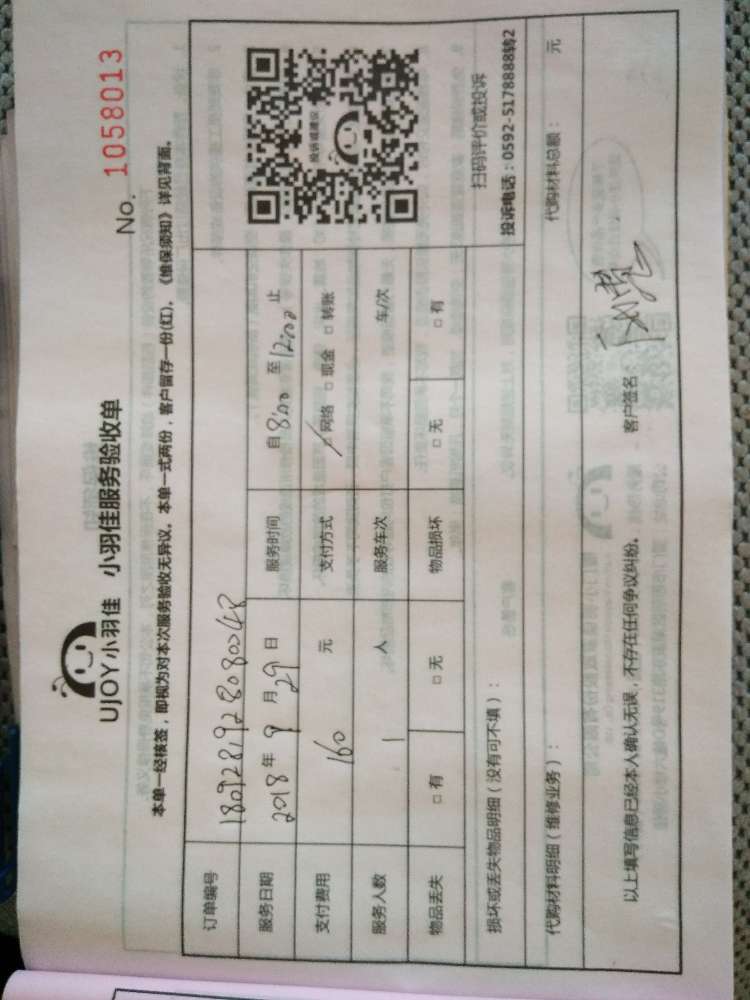 No. 1058013
UJOY小羽佳 小羽佳服务验收单
本单一经核签，即视为对本次服务验收无异议。本单一式两份，客户留存一份(红)。《维保须知》详见背面。
订单编号 180928192808048
服务日期 2018年9月29日 服务时间 自8:00至12:00止
支付费用 160 元 支付方式 □网络 □现金 □转账
服务人数 1 人 服务车次 车/次
物品丢失 □有 □无 物品损坏 □无 □有
投诉或建议
扫码评价或投诉
投诉电话：0592-5178888转2
损坏或丢失物品明细（没有可不填）：
代购材料明细（维修业务）： 代购材料总额： 元
以上填写信息已经本人确认无误，不存在任何争议纠纷。 客户签名：